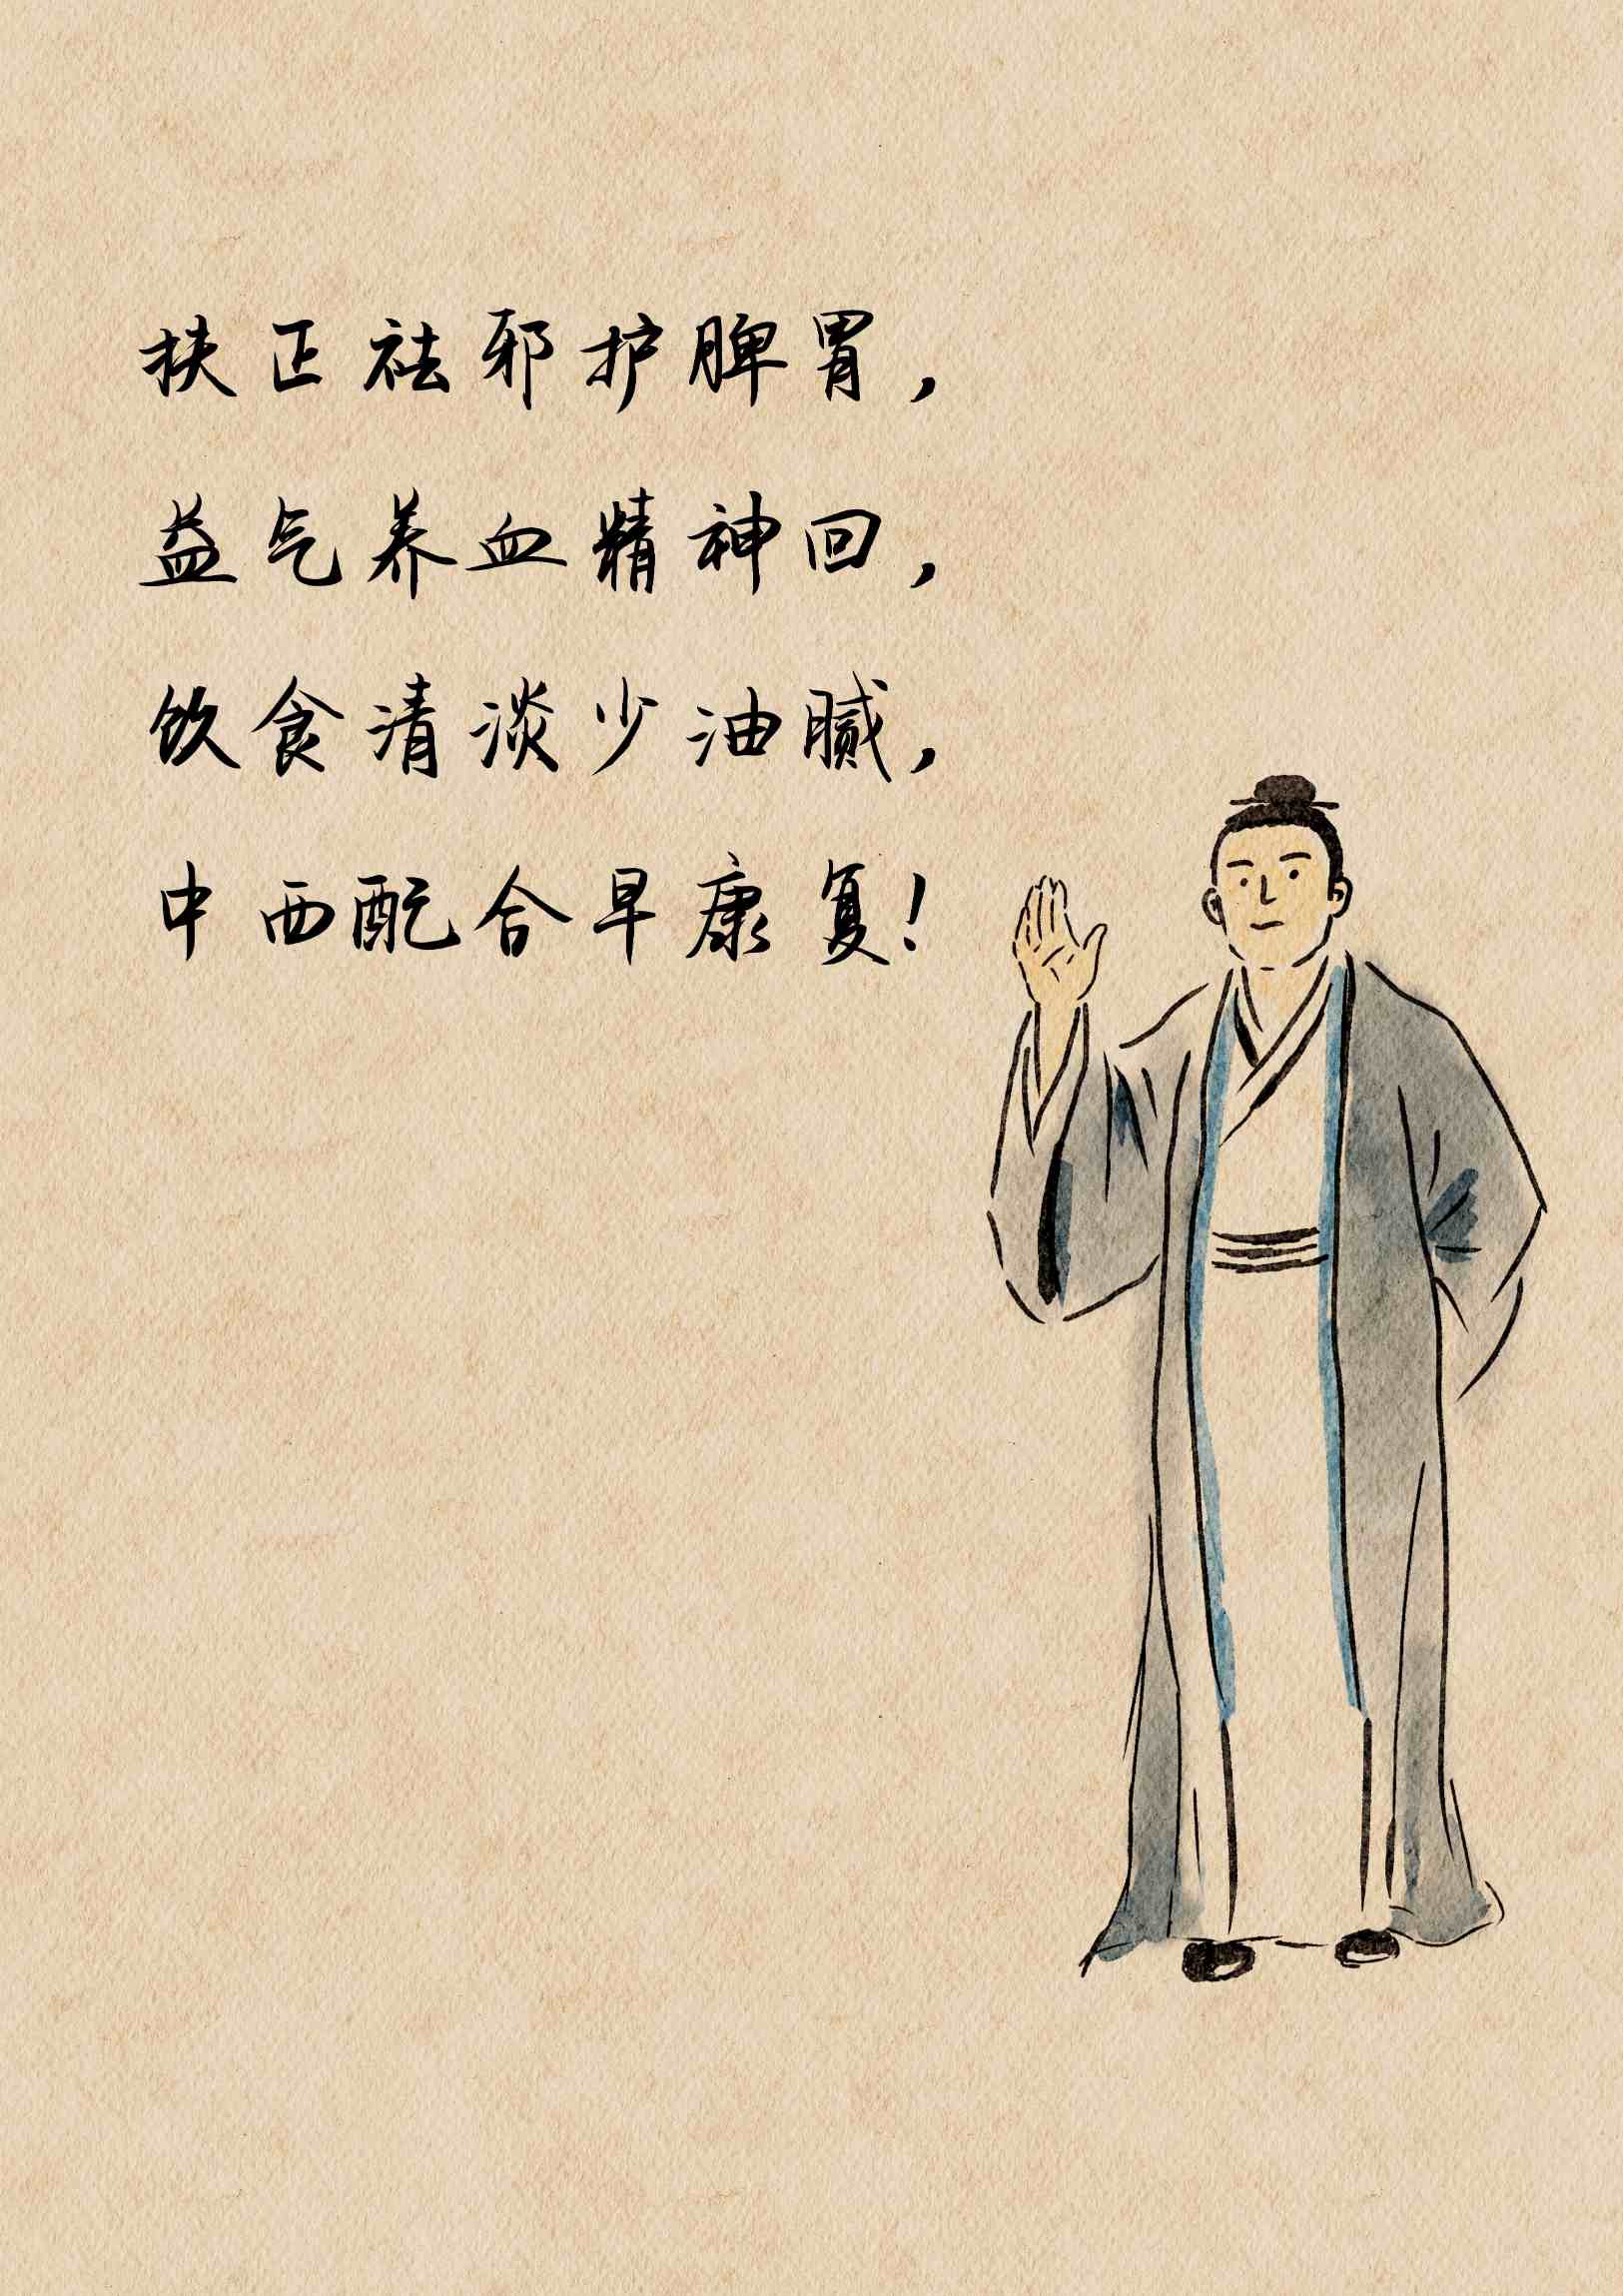 扶正祛邪护脾胃，
益气养血精神回，
饮食清淡少油腻，
中西配合早康复！